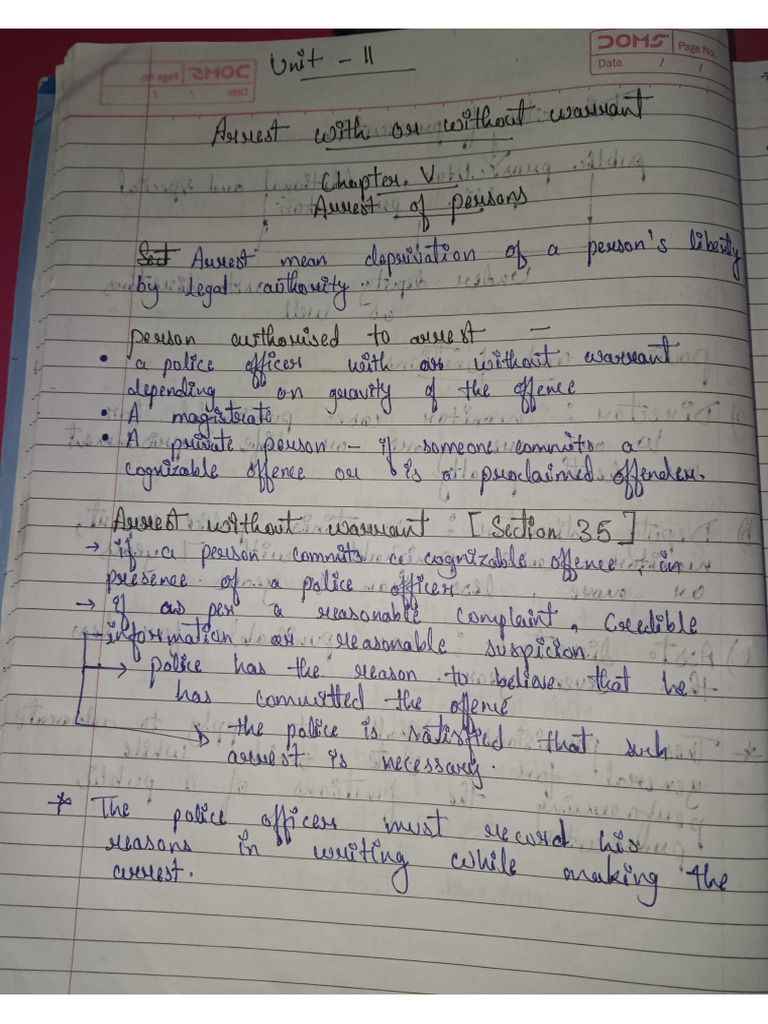 DOMS
Page No.
Date / /
Unit - II
Arrest with or without warrant
Chapter. V
Arrest of persons
Arrest mean deprivation of a person's liberty
by legal authority.
person authorised to arrest -
• a police officer with or without warrant
depending on gravity of the offence
• A magistrate
• A private person - if someone commits a
cognizable offence or is a proclaimed offender.
Arrest without warrant [Section 35]
→ if a person commits a cognizable offence, in
presence of a police officer
→ if as per a reasonable complaint, credible
information or reasonable suspicion.
→ police has the reason to believe that he
has committed the offence
→ the police is satisfied that such
arrest is necessary.
* The police officer must record his
reasons in writing while making the
arrest.